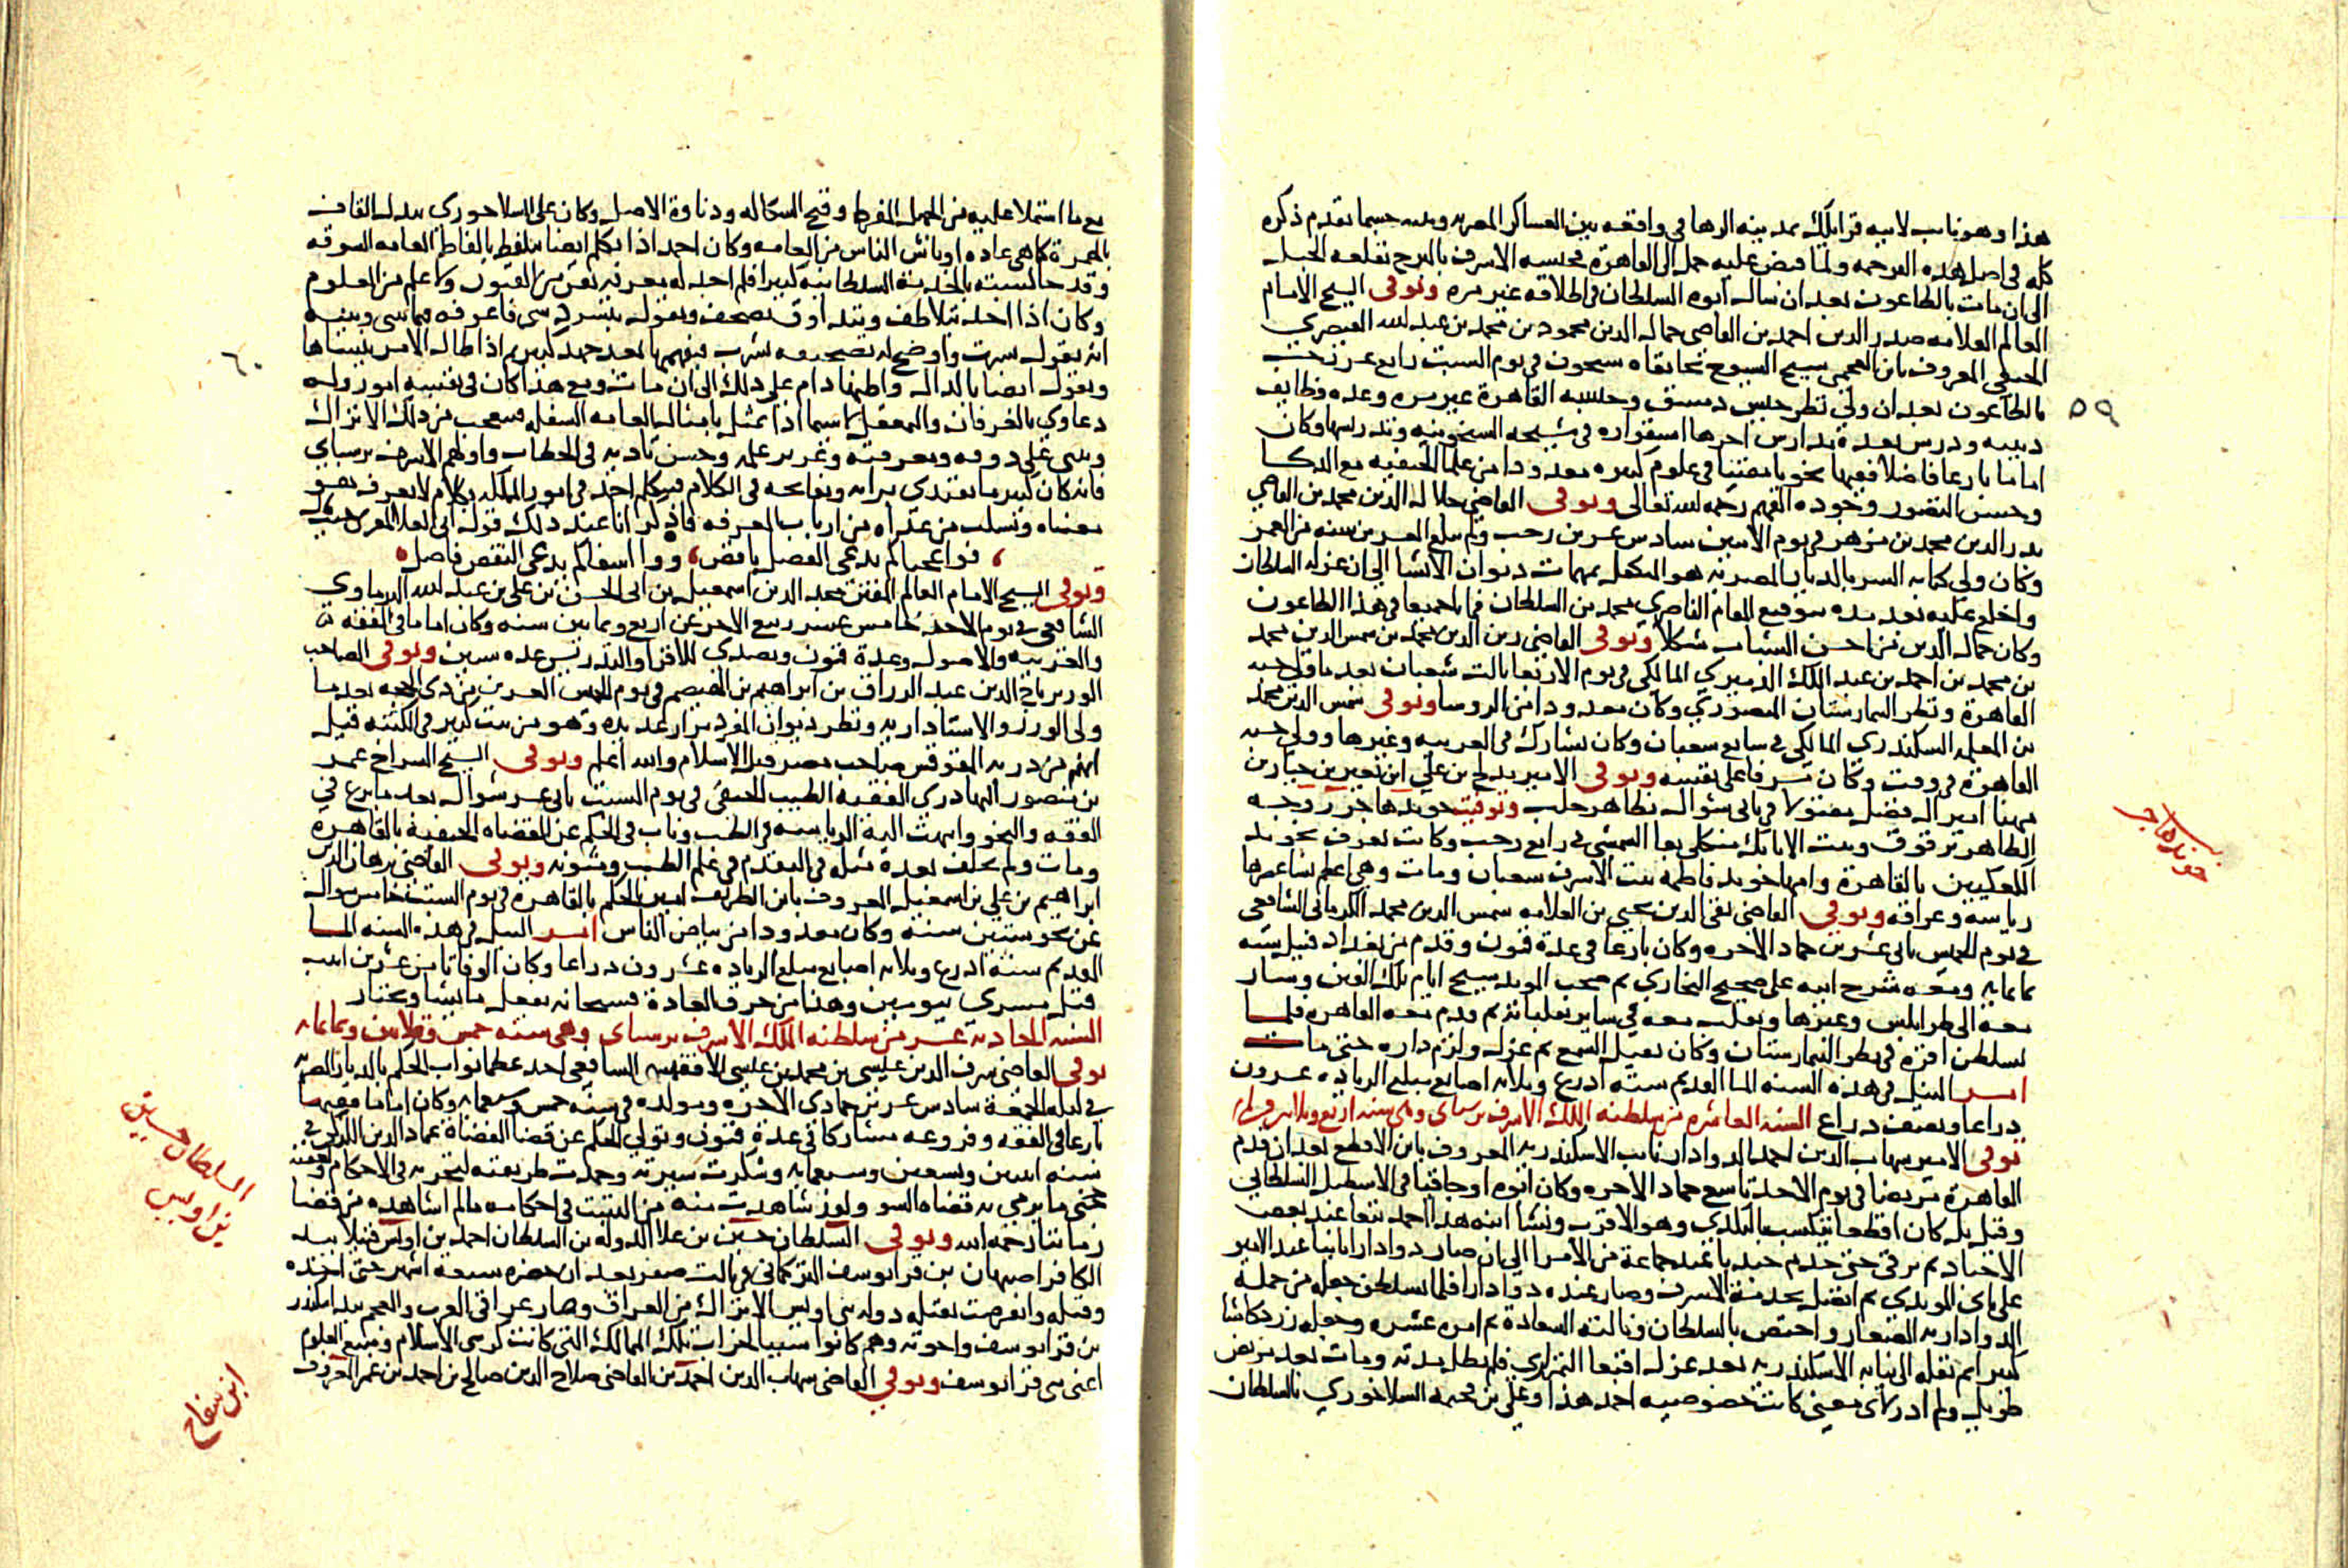 هذا وهو نايب لابيه قرايلك بمدينة الرها فى واقعة بين العساكر المصريه وبينه حسبما تقدم ذكره
كله فى اصل هذه الترجمه ولما قبض عليه حمل الى القاهرة فحبسه الاشرف بالبرج بقلعه الجبل
الى ان مات بالطاعون بعد ان سال ابوه السلطان فى اطلاقه غير مره وتوفى الشيخ الامام
العالم العلامه صدر الدين احمد بن القاضى جمال الدين محمود بن محمد بن عبد الله القيصري
الحنفى المعروف بابن العجمى شيخ الشيوخ بخانقاه شيخون فى يوم السبت رابع عشر رجب
بالطاعون بعد ان ولى نظر جيش دمشق وحسبه القاهرة غير مره وعده وظايف
دينيه ودرس بعدة مدارس اخرها استقراره فى مشيخه الشيخونيه وتدريسها وكان
اماما بارعا فاضلا فقيها نحويا مفتيا فى علوم كثيره معدودا من علما الحنفيه مع الذكا
وحسن التصور وجوده الفهم رحمه الله تعالى وتوفى القاضى جلال الدين محمد بن القاضي
بدر الدين محمد بن مزهر فى يوم الاثنين سادس عشرين رجب ولم يبلغ العشرين سنه من العمر
وكان ولى كتابه السر بالديار المصريه هو المتكفل بمهمات ديوان الانشا الى ان عزله السلطان
واخلع عليه بعد مده بتوقيع المقام الناصرى محمد بن السلطان فماتا جميعا فى هذا الطاعون
وكان جمال الدين من احسن الشباب شكلا وتوفى القاضى زين الدين محمد بن شمس الدين محمد
بن محمد بن احمد بن عبد الملك الدميري المالكى فى يوم الاربعا ثالث شعبان بعد ما ولى حسبه
القاهرة ونظر البيمارستان المنصوري وكان معدودا من الروسا وتوفى شمس الدين محمد
بن المعلمه السكندري المالكى فى سابع شعبان وكان يشارك فى العربيه وغيرها وولى حسبه
القاهرة فى وقت وكان مسرفا على نفسه وتوفى الامير مدلج بن علي ابن نعير بن حيار بن
مهنا امير ال فضل مقتولا فى ثانى شوال بظاهر حلب وتوفيت خوند هاجر زوجه
الظاهر برقوق وبنت الاتابك منكلى بغا الشمسى فى رابع رجب وكانت تعرف بخوند
الكعكيين بالقاهرة وامها خوند فاطمه بنت الاشرف شعبان وماتت وهى اعظم نسا عصرها
رياسه وعراقه وتوفى القاضى تقى الدين يحيى بن العلامه شمس الدين محمد الكرمانى الشافعى
فى يوم الخميس ثانى عشرين جماد الاخره وكان بارعا فى عدة فنون وقدم من بغداد قبيل سنه
ثمانمايه ومعه شرح ابيه على صحيح البخاري ثم صحب المويد شيخ ايام تلك الفتن وسار
معه الى طرابلس وغيرها وتقلب معه فى ساير تقلباته ثم قدم معه القاهره فلما
تسلطن اقره فى نظر البيمارستان وكان ثقيل السمع ثم عزل ولزم داره حتى مات
امر النيل فى هذه السنه الما القديم سته اذرع وثلاثه اصابع مبلغ الزياده عشرون
ذراعا ونصف ذراع السنه العاشره من سلطنه الملك الاشرف برسباى وهى سنه اربع وثلاثين وثمانمايه
توفى الامير شهاب الدين احمد الدوادار نايب الاسكندريه المعروف بابن الاقطع بعد ان قدم
القاهرة مريضا فى يوم الاحد تاسع جماد الاخره وكان ابوه اوجاقيا فى الاسطبل السلطانى
وقيل بل كان اقطعا يتكسب بالكدى وهو الاقرب ونشا ابنه هذا احمد تبعا عند بعض
الاجناد ثم ترقى حتى خدم جنديا عند جماعة من الامرا الى ان صار دوادارا ثانيا عند الامير
على باى المويدى ثم اتصل بخدمة الاشرف وصار عنده دوادارا فلما تسلطن جعله من جمله
الدواداريه الصغار واختص بالسلطان ونالته السعادة ثم امره عشره وجعله زردكاشا
كبيرا ثم نقله الى نيابه الاسكندريه بعد عزل اقبغا التمرازى فلم تطل مدته ومات بعد مرض
طويل ولم ادر لاى معنى كانت خصوصيه احمد هذا وعلي بن محمد السلاخوري بالسلطان
٥٩
خوند هاجر
مع ما اشتملا عليه من الجهل المفرط وقبح الشكاله ودناوة الاصل وكان على السلاخورى يبدل القاف
بالهمزة كما هى عاده اوباش الناس من العامه وكان احمد اذا تكلم ايضا يتلفظ بالفاظ العامه السوقه
وقد جالسته بالخدمة السلطانيه كثيرا فلم اجد له معرفه بفن من الفنون ولا علم من العلوم
وكان اذا اخذ يتلاطف ويتذاوق يصحف ويقول بتسرد سى فاعرفه فيما بينى وبينه
انه يقول سرت واوضح له تصحيفه لشرب فيفهمها بعد جهد كبير ثم اذا طال الامر ينساها
ويقول ايضا بالدال واظنها دام على ذلك الى ان مات ومع هذا كان فى نفسه امور وله
دعاوي بالعرفان والتمعقل لا سيما اذا تمثل بامثال العامه السفله فيتعجب من ذلك الاتراك
ويثنى على ذوقه ومعرفته وغزير علمه وحسن تاديه فى الخطاب واولهم الاشرف برسباي
فانه كان كثيرا ما يقتدى برايه ويفاتحه فى الكلام فيتكلم احمد فى امور المملكه بكلام لا يعرف هو
معناه ونسكت من عداه من ارباب المعرفه فاذكر انا عند ذلك قول ابى العلا المعرى حيث
فوا عجبا كم يدعى الفضل ناقص ووا اسفا كم يدعى النقص فاضل
وتوفى الشيخ الامام العالم المفنن مجد الدين اسمعيل بن ابى الحسن بن على بن عبد الله البرماوي
الشافعى فى يوم الاحد خامس عشر ربيع الاخر عن اربع وثمانين سنه وكان اماما فى الفقه
والعربيه والاصول وعدة فنون وتصدى للاقرا والتدريس عده سنين وتوفى الصاحب
الوزير تاج الدين عبد الرزاق بن ابراهيم بن الهيصم فى يوم الخميس العشرين من ذى الحجه بعد ما
ولى الوزر والاستاداريه ونظر ديوان المفرد مرارا عديده وهو من بيت كبير فى الكتبه قيل
انهم من ذريه المقوقس صاحب مصر قبل الاسلام والله اعلم وتوفى الشيخ السراج عمر
بن منصور البهادرى الفقيه الطبيب الحنفى فى يوم السبت ثانى عشر شوال بعد ما برع فى
الفقه والنحو وانتهت اليه الرياسه فى الطب وناب فى الحكم عن القضاه الحنفية بالقاهرة
ومات ولم يخلف بعدة مثله فى التقدم فى علم الطب ومتونه وتوفى القاضى برهان الدين
ابراهيم بن علي بن اسمعيل المعروف بابن الظريف امين الحكم بالقاهرة فى يوم السبت خامس شوال
عن نحو ستين سنه وكان معدودا من بياض الناس امر النيل فى هذه السنه الما
القديم ستة اذرع وثلاثه اصابع مبلغ الزياده عشرون ذراعا وكان الوفا ثامن عشرين ابيب
قبل مسرى بيومين وهذا من خرق العادة فسبحانه يفعل ما يشا ويختار
السنه الحاديه عشر من سلطنه الملك الاشرف برسباى وهى سنه خمس وثلاثين وثمانمايه
توفى القاضى شرف الدين عيسى بن محمد بن عيسى الاقفهسى الشافعى احد عظما نواب الحكم بالديار المصريه
فى ليله الجمعة سادس عشرين جمادى الاخره ومولده فى سنه خمس وسبعمايه وكان اماما فقيها
بارعا فى الفقه وفروعه مشاركا فى عدة فنون وتولى الحكم عن قضا القضاة عماد الدين الكركى فى
سنه اثنين وتسعين وسبعمايه وشكرت سيرته وحمدت طريقته لتحريه فى الاحكام وعفته
حتى ما يرمى به قضاه السو ولقد شاهدت منه من التثبت فى احكامه مالم اشاهده من قضاة
زماننا رحمه الله وتوفى السلطان حسين بن علا الدوله بن السلطان احمد بن اويس قتيلا بيد
الكافر اصبهان بن قرا يوسف التركمانى فى ثالث صفر بعد ان حصره سبعه اشهر حتى اخذه
وقتله وانقرضت بقتله دوله بنى اويس الاتراك من العراق وصار عراقى العرب والعجم بيد اسكندر
بن قرا يوسف واخوته وهم كانوا سببا لخراب تلك الممالك التى كانت كرسى الاسلام ومنبع العلوم
اعنى بنى قرا يوسف وتوفى القاضى شهاب الدين احمد بن القاضى صلاح الدين صالح بن احمد بن عمر المعروف
٦٠
السلطان حسين
بن اويس
ابن سفاح